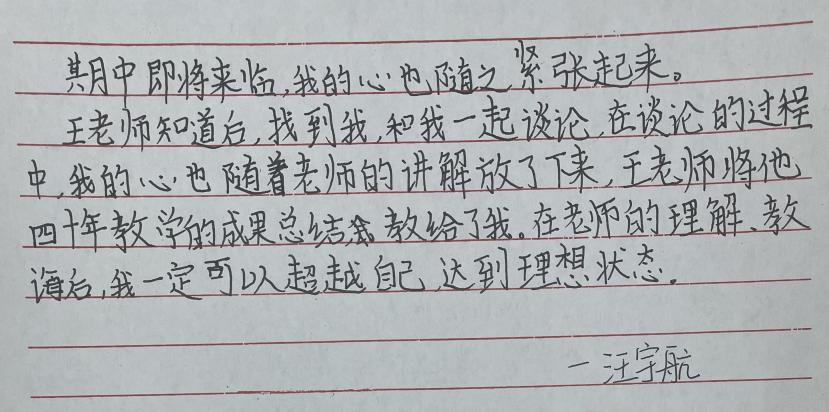 期中即将来临,我的心也随之紧张起来。
王老师知道后,找到我,和我一起谈论,在谈论的过程
中,我的心也随着老师的讲解放了下来,王老师将他
四十年教学的成果总结教给了我。在老师的理解、教
诲后,我一定可以超越自己,达到理想状态。
一汪宇航